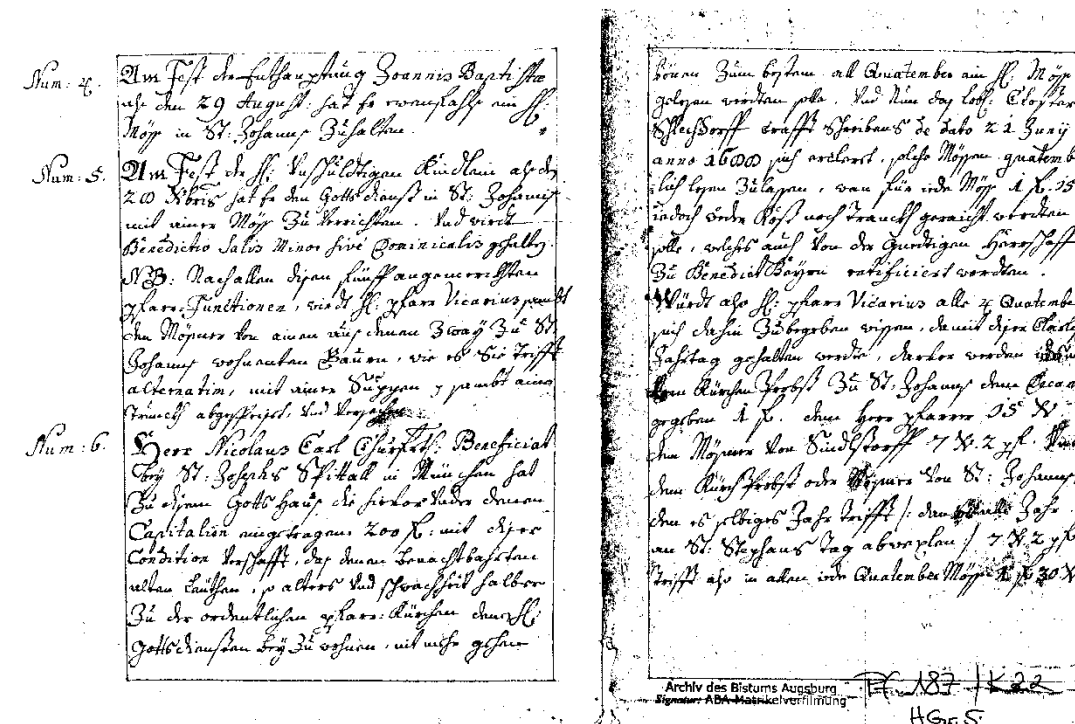 Num: 4. Am Fest der Enthauptung Joannis Baptistæ
als den 29 August: hat Er ebenfahls ein Hl:
Möss in St: Johanns Zuhalten.
Num: 5. Am Fest der Hl: Unschuldtigen Kindlein als den
28 Xbris hat Er den Gottsdienst in St: Johanns
mit einer Möss Zu Verrichten. Und wirdt
Benedictio Salis Minor sive Dominicalis gehalten.
NB: Nach allen disen fünff angemerckhten
pfarr: Functionen, wirdt H: pfarr Vicarius sambt
den Mössner von ainen aus denen Zway Zu St:
Johanns wohnenten Bauren, wie es Sie Trifft
alternatim, mit einer Suppen sambt ainem
Trunckh abgespeiset, und Versehen
Num: 6. Herr Nicolaus Carl Churfrtl: Beneficiat
bey St: Josephs Spittall in München hat
Zu disem Gotts Haus die hievor Under denen
Capitalien eingetragene 200 fl: mit diser
Condition Verschafft, das denen benachbahrten
alten Leuthen, so alters und schwachheit halber
Zu der ordentlichen pfarr: Kürchen denen Hl:
Gottsdiensten bey Zu wohnen, nit mehr gehen
könen Zum bestem all Quatember ain Hl: Möss
gelesen werdten solle. Und Nun das Löbl: Closter
Schlechdorff crafft Schreibens de dato 21 Juny
anno 1688 sich ercleret, solche Mössen quatemb
lich lesen Zulassen, wan für iede Möss 1 fl. 15
iedoch weder Kost noch Trunckh geraicht werdten
solle, welches auch von der Gnedtigen Herrschafft
Zu Benedict Beyrn ratificiert werdten.
Würdt also H: pfarr Vicarius alle 4 Quatember
sich dahin Zubegeben wissen, damit diser
Jahrtag gehalten werdte, darfür werden
dem Kürchen Probst Zu St: Johanns dem
gegeben 1 fl. dem Herr pfarrer 15 X
dem Mössner von Sindlstorff 7 X. 2 pf.
dem Kürch Probst oder Mössner von St: Johanns,
den es selbiges Jahr trifft /: dan Jahr
an St: Stephans Tag abwexlen / 7 X. 2 pf.
Trifft also in allen iede Quatember Möss 1 fl 30 X
Archiv des Bistums Augsburg
Signatur: ABA Matrikelverfilmung
Pf 187 / K 22
HGr. 5